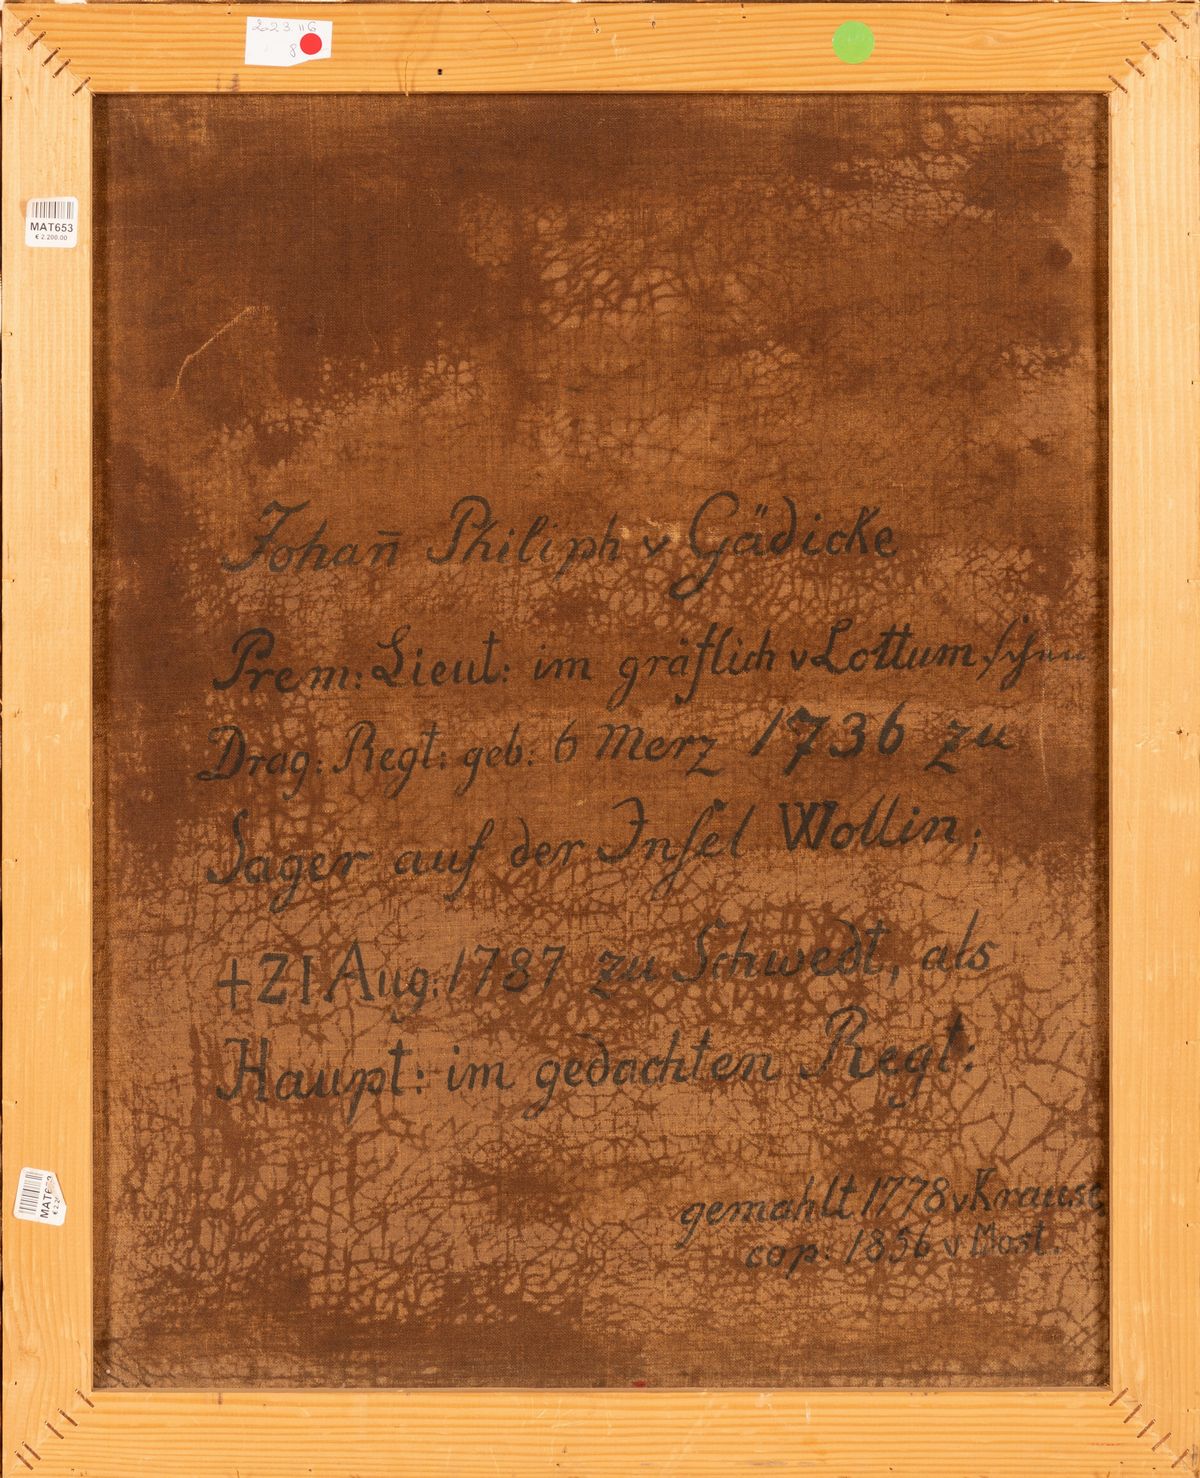 2023 116
8
MAT653
€ 2.200.00
Johan̄ Philiph v Gädicke
Prem: Lieut: im gräflich v Lottum'schen
Drag: Regt: geb: 6 Merz 1736 zu
Sager auf der Insel Wollin;
+21 Aug: 1787 zu Schwedt, als
Haupt: im gedachten Regt:
gemahlt 1778 v Krause
cop: 1856 v Most.